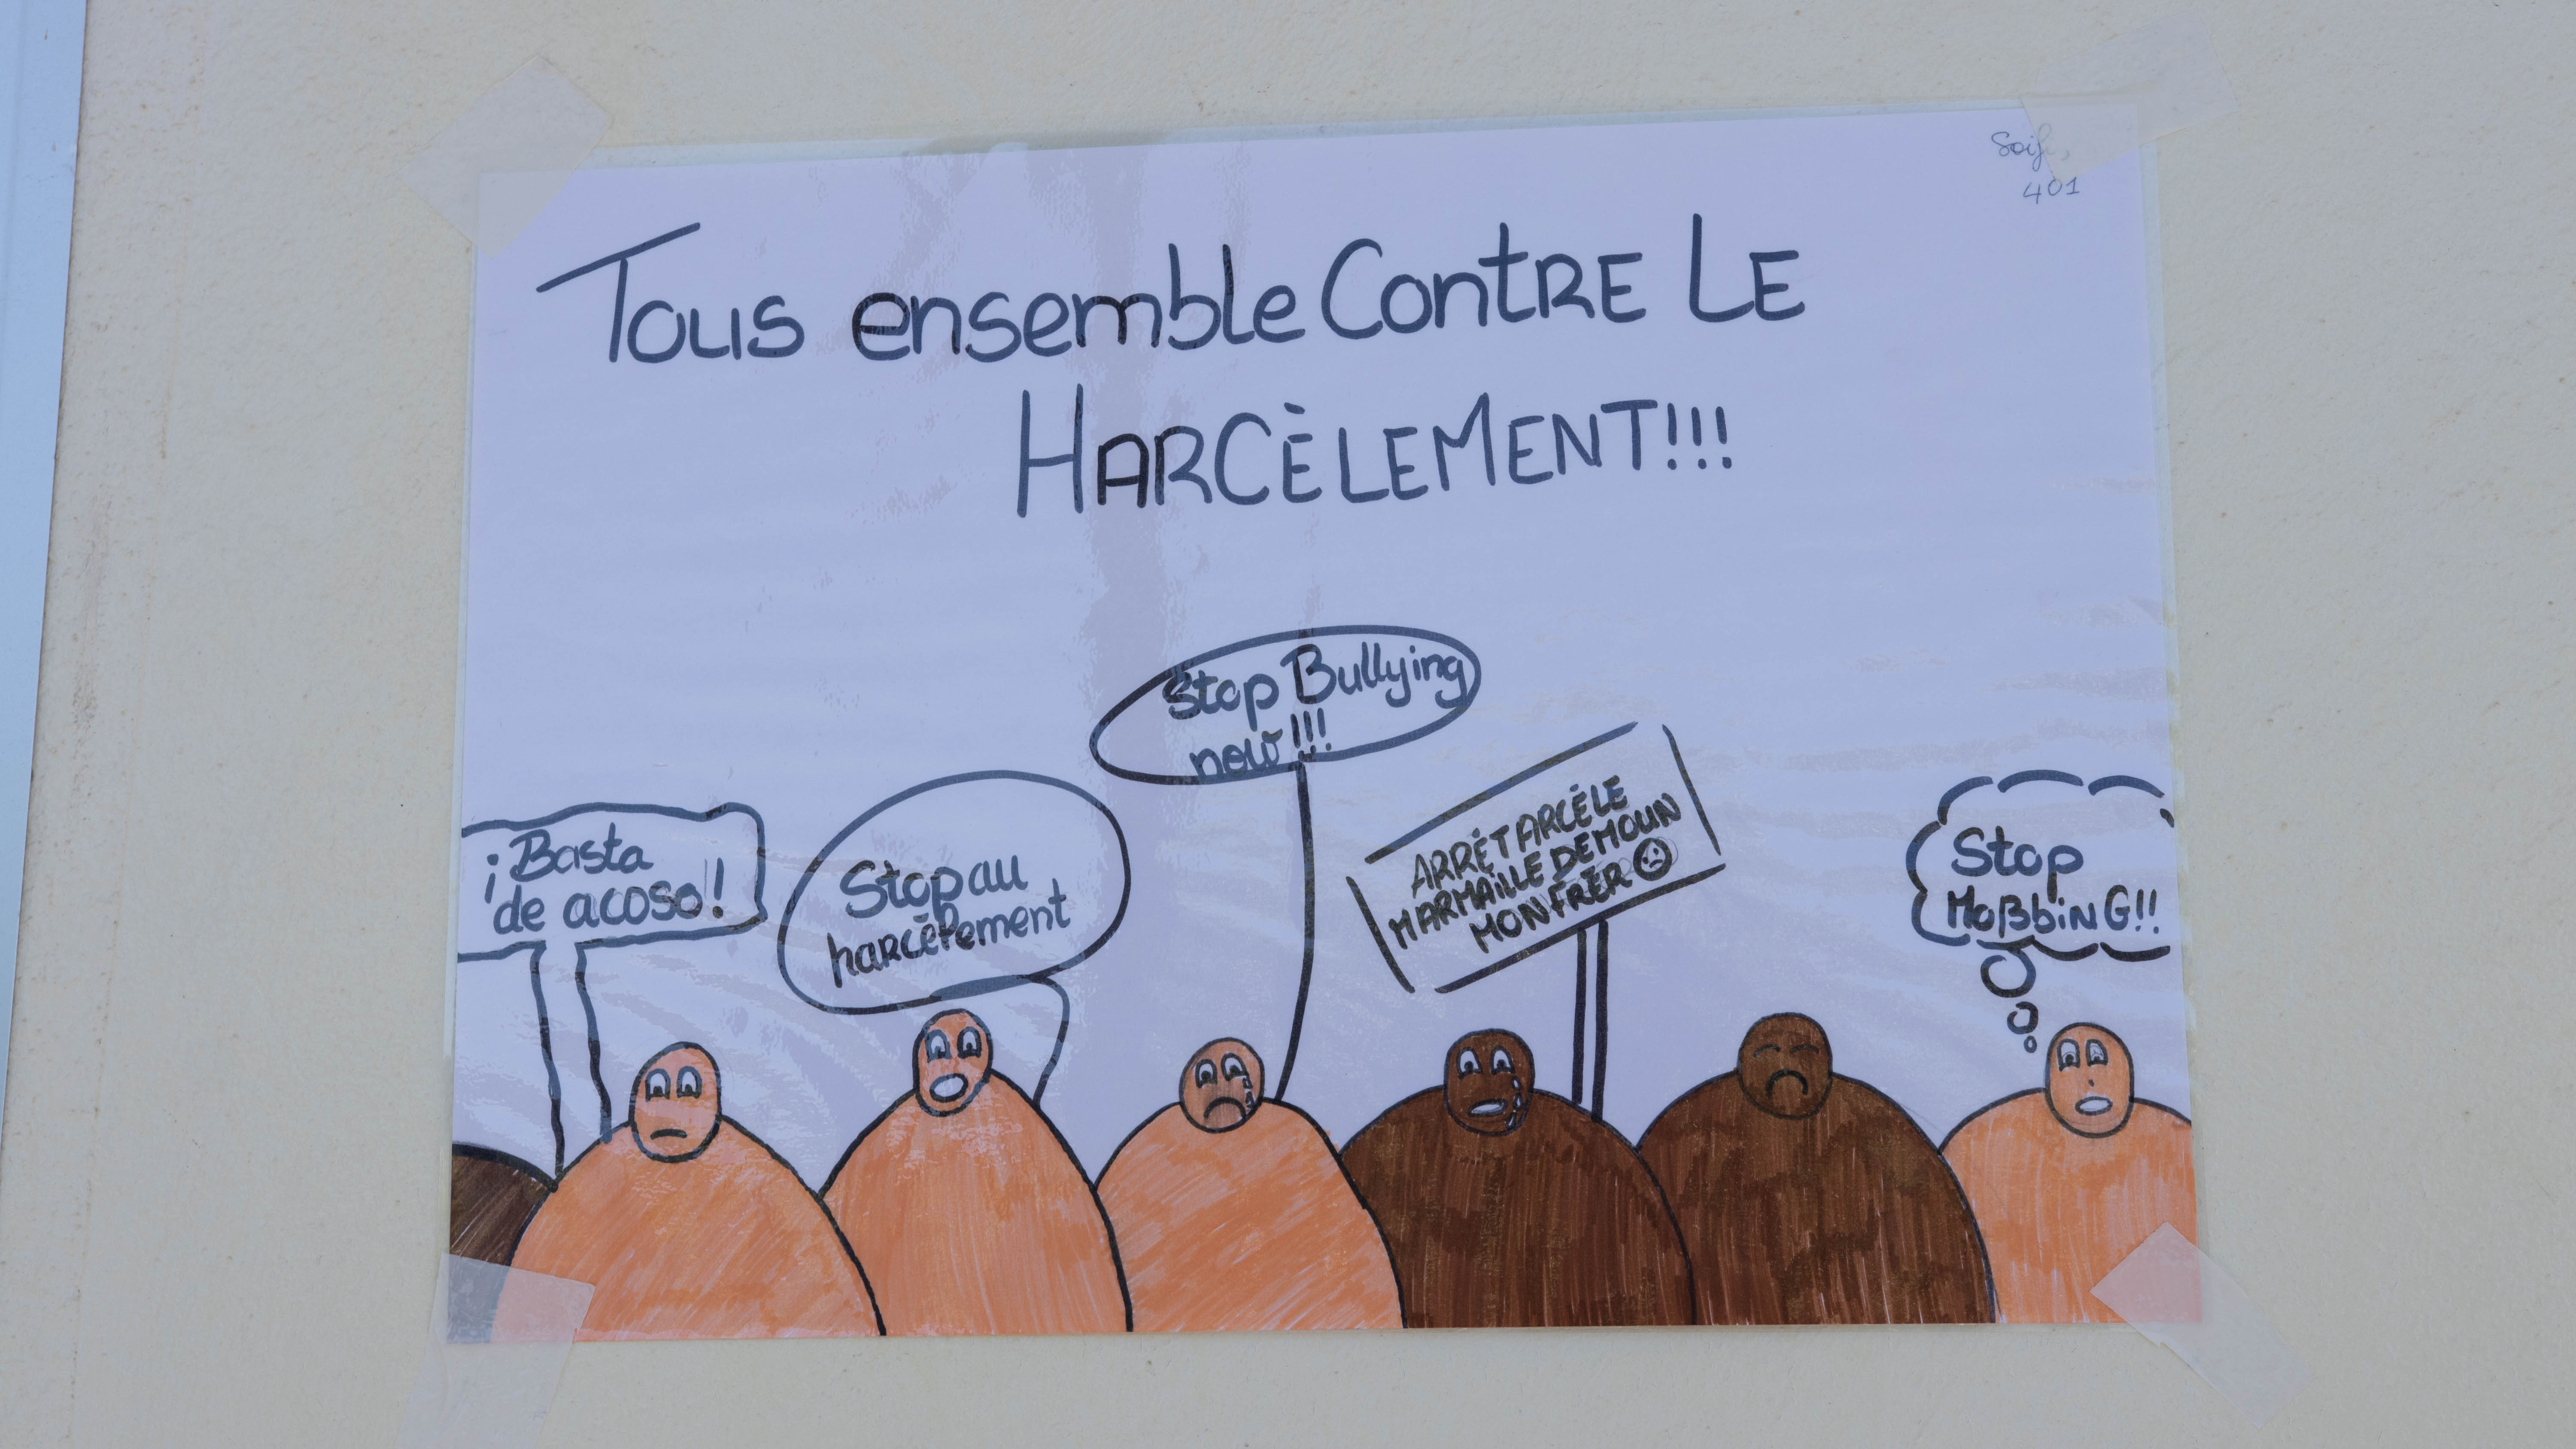 401
Tous ensemble Contre Le
HARCÈLEMENT!!!
¡Basta
de acoso!!
Stop au
harcèlement
Stop Bullying
now!!!
ARRÊT ARCÉLE
MARMAILLE DEMOUN
MON FRÈR
Stop
MoßbinG!!